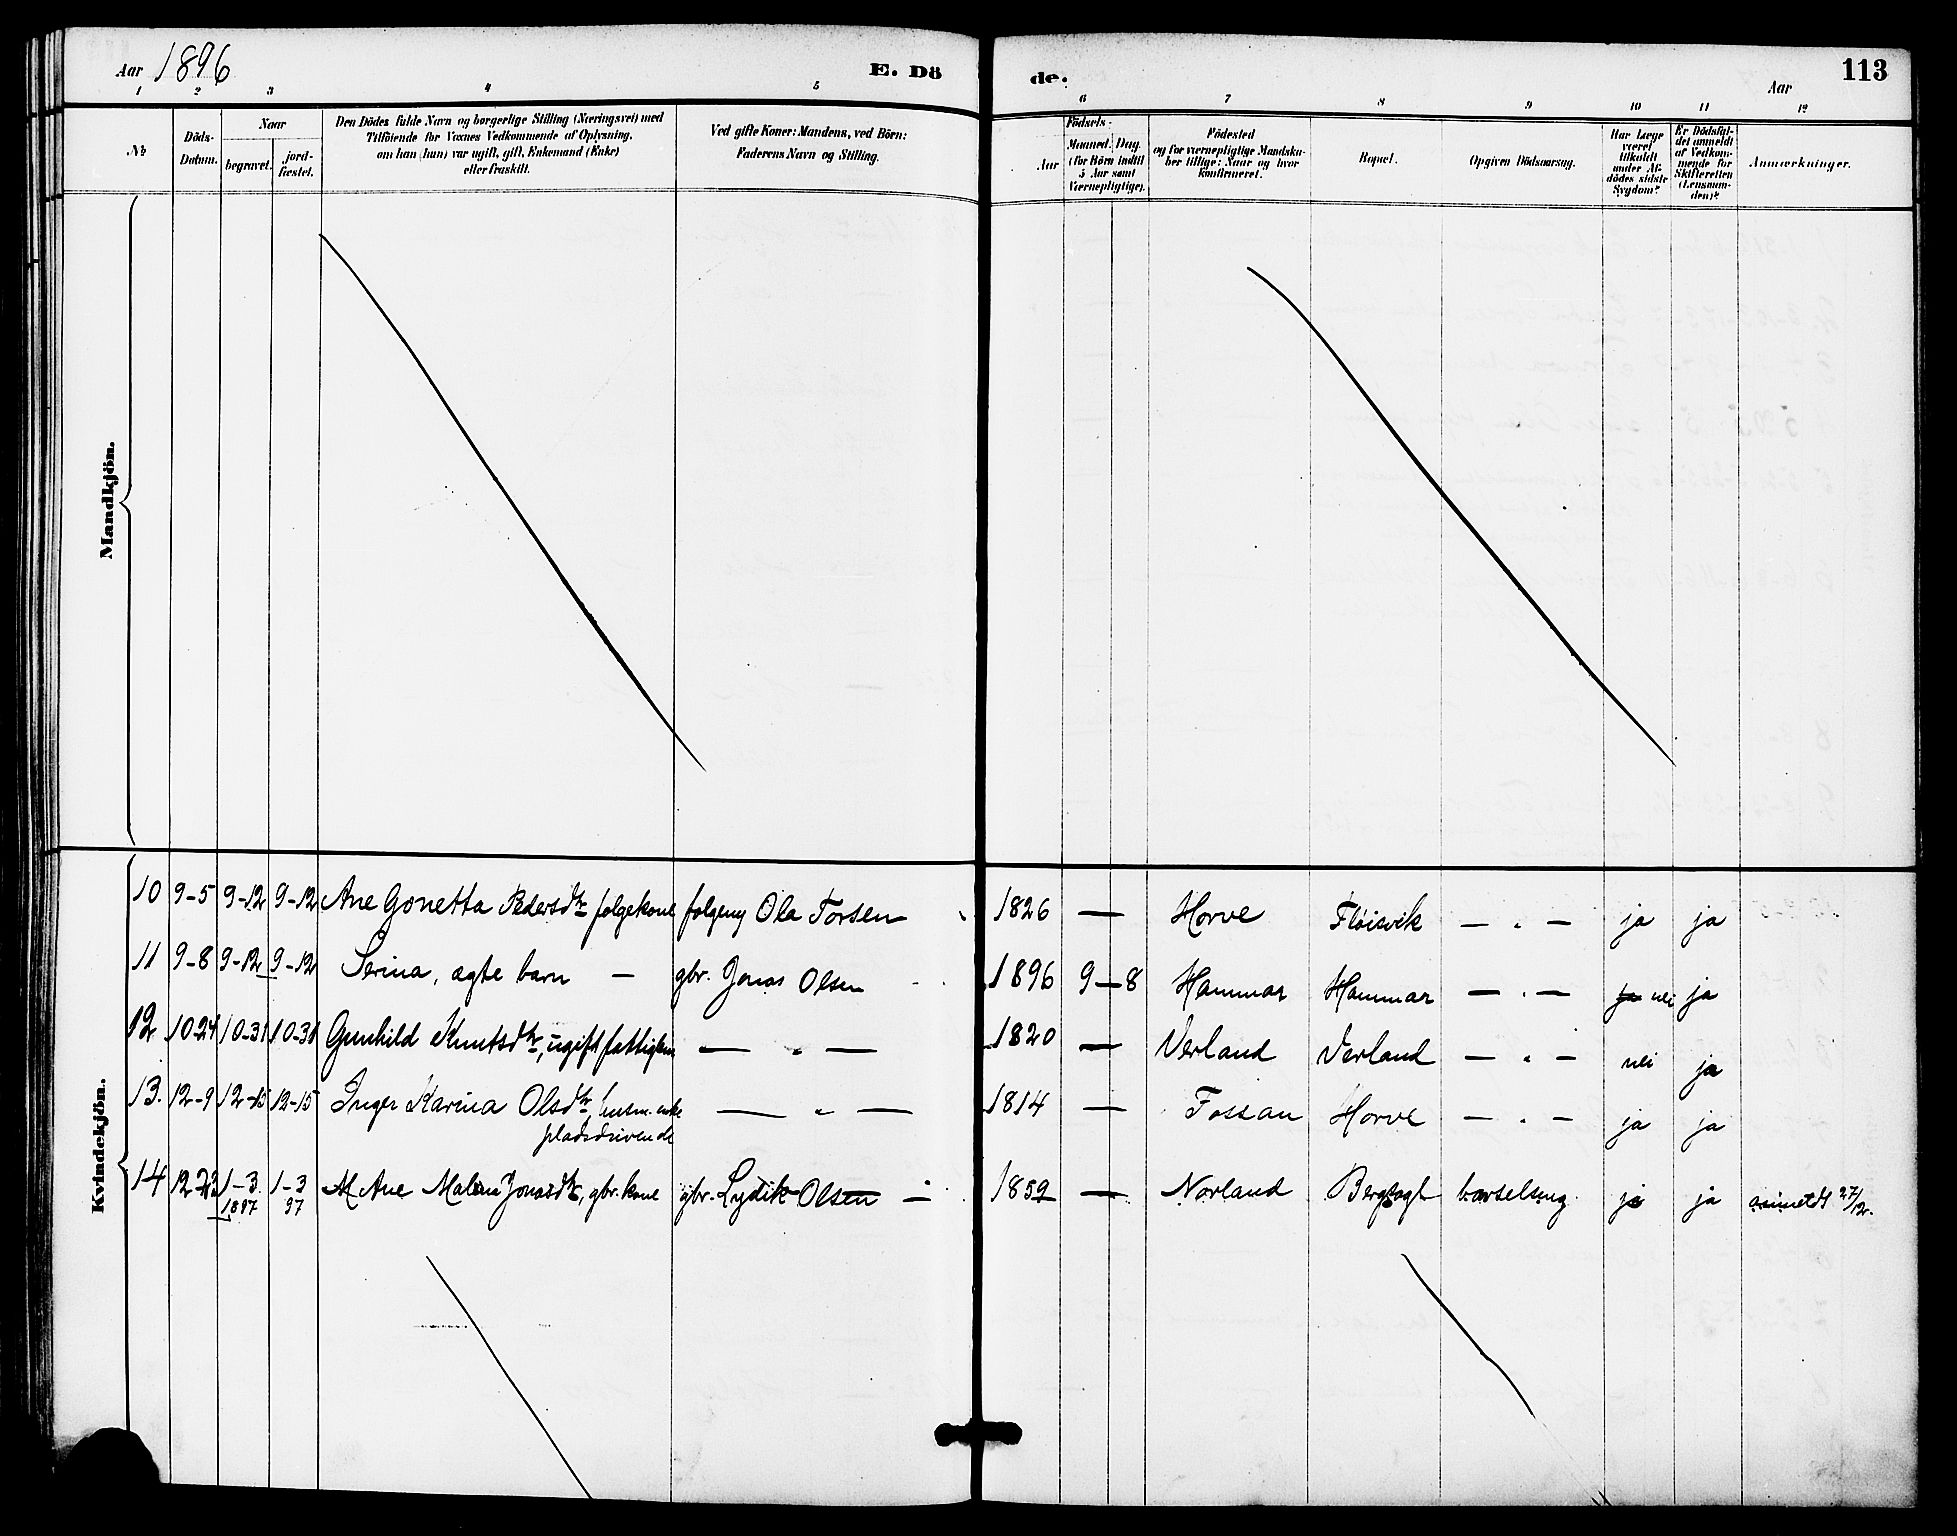 Aar 1896
E. Dö
de.
Aar
113
1 2 3 4 5 6 7 8 9 10 11 12
№
Döds-
Datum.
Naar
begravet.
jord-
fæstet.
Den Dödes fulde Navn og borgerlige Stilling (Næringsvei) med
Tilföiende for Voxnes Vedkommende af Oplysning,
om han (hun) var ugift, gift, Enkemand (Enke)
eller fraskilt.
Ved gifte Koner: Mandens, ved Börn:
Faderens Navn og Stilling.
Aar
Födsels-
Maaned. Dag.
(for Börn indtil
5 Aar samt
Værnepligtige).
Födested
og for værnepligtige Mandska-
ber tillige: Naar og hvor
konfirmeret.
Bopæl.
Opgiven Dödsaarsag.
Har Læge
været
tilkaldt
under Af-
dödes sidste
Sygdom?
Er Dödsfal-
det anmeldt
af Vedkom-
mende for
Skifteretten
(Lensman-
den)?
Anmærkninger.
Mandkjön.
Kvindekjön.
10 9-5 9-12 9-12 Ane Gonetta Pedersdtr folgekone folgem Ola Torsen 1826 — Horve Fløisvik — " — ja ja
11 9-8 9-12 9-12 Serina, ægte barn — gbr. Jonas Olsen 1896 9-8 Hammar Hammar — " — ja nei ja
12 10-24 10-31 10-31 Gunhild Knutsdtr, ugift fattiglem — " — 1820 — Verland Verland — " — nei ja
13. 12-9 12-15 12-15 Inger Karina Olsdtr, husm. enke — " — 1814 — Fossan Horve — " — ja ja
pladsdrivende
14 12-23 1-3 1-3 Ane Malena Jonasdtr, gbr. kone gbr. Lydik Olsen — 1859 — Norland Bergtagt barselseng ja ja anmeldt 27/12.
1897 97